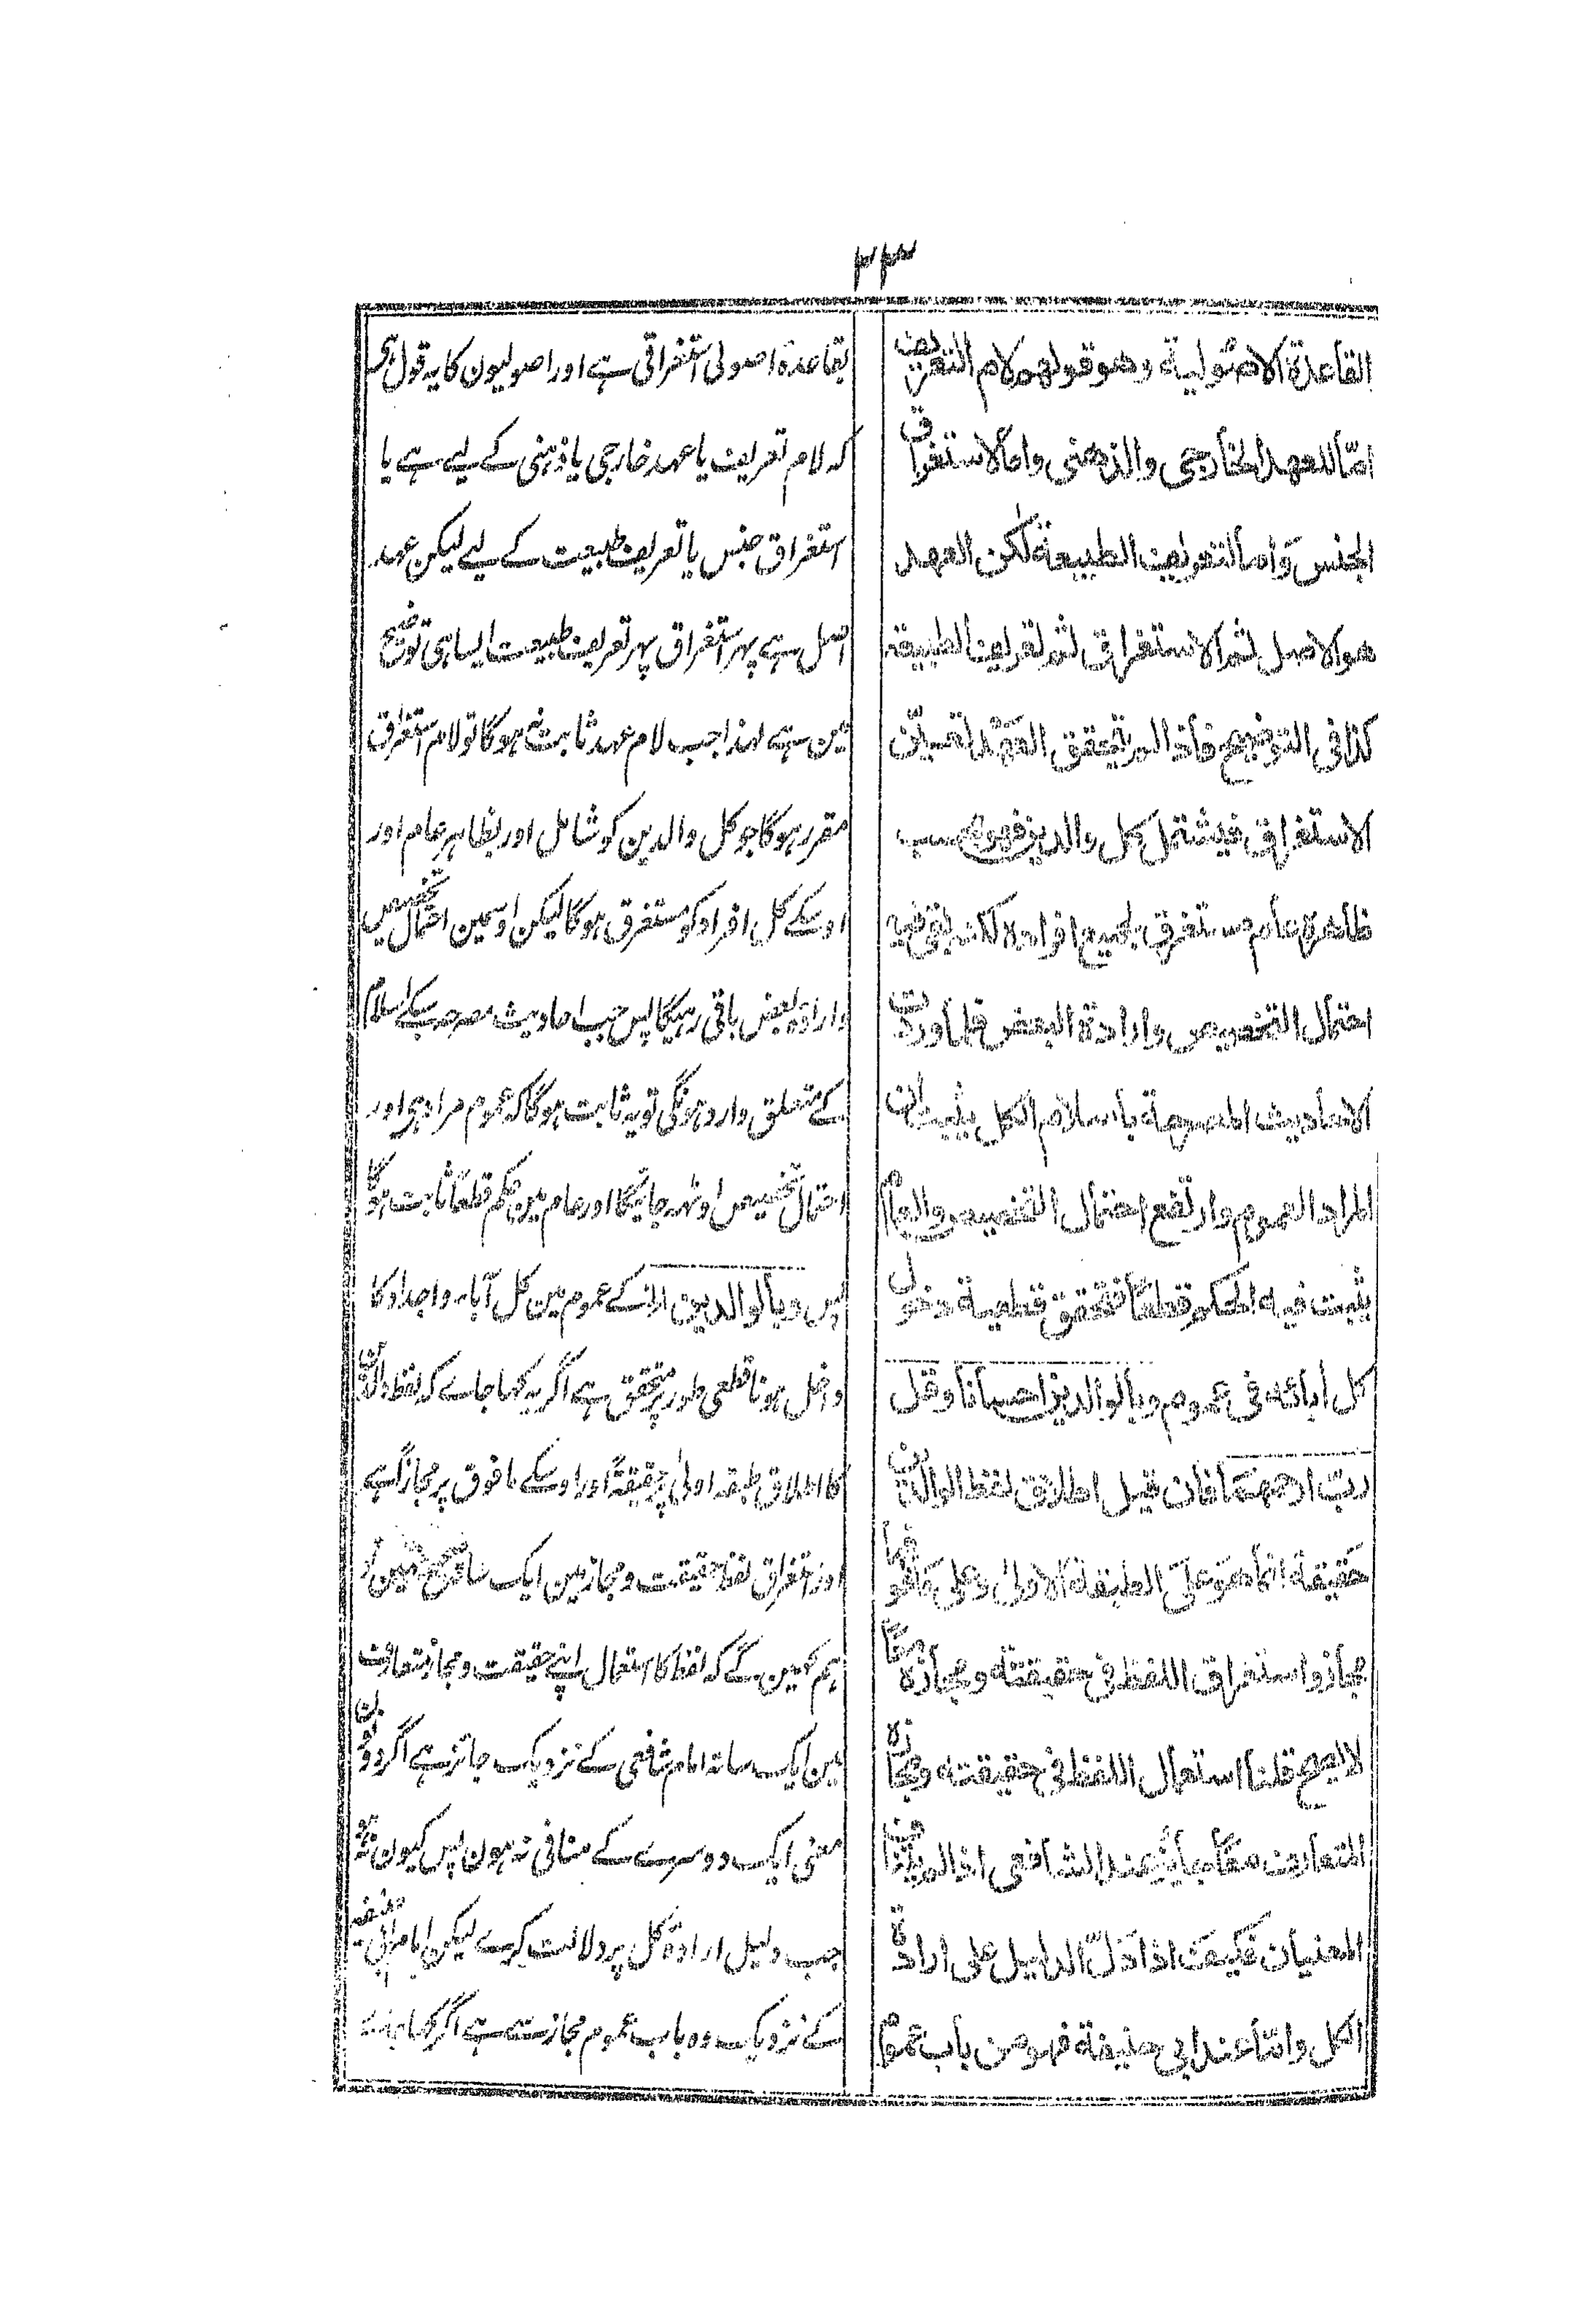 ۳۳
القاعدة الاصولية وهو قولهم لام التعريف
امّا للعهد الخارجى والذهنى واما لاستغراق
الجنس وَاما لتعريف الطبيعة لٰكن العهد
هو الاصل ثم الاستغراق ثم تعريف الطبيعة
كذا فى التوضيح فاذا لم يتحقق العَهْد تعيّن
الاستغراق فيشتمل كل والدين فهو بحسب
ظاهره عام مستغرق لجميع افراده لكنه بقى فيه
احتمال التخصيص وارادة البعض فلما وردت
الاحاديث المصرحة باسلام الكل يثبت ان
المراد العموم وارتفع احتمال التخصيص والعام
يثبت فيه الحكم قطعًا فتحقق قطعية دخول
كل أبائه فى عموم وبالوالدين احسانا وقل
ربّ ارحمهما فان قيل اطلاق لفظ الوالدين
حَقيقة انما هَوَ عَلَى الطبقة الاولىٰ وعلى مَافوقها
مجاز واستغراق اللفظ فى حقيقته ومجازه معًا
لا يصح قلنا استعمال اللفظ فى حقيقته ومجازه
المتعارف معًا جائز عند الشافعى اذا لم يتناف
المعنيان فكيف اذا دَلّ الدليل على ارادة
الكل وامّا عند ابي حنيفة فهو من باب عموم
بقاعدۂ اصولی استغراقی ہے اور اصولیون کا یہ قول ہی
کہ لام تعریف یا عہد خارجی یا ذہنی کے لیے ہے یا
استغراق جنس یا تعریف طبیعت کے لیے لیکن عہد
اصل ہے پھر استغراق پھر تعریف طبیعت ایسا ہی توضیح
مین ہے لہذا جب لام عہد ثابت نہ ہوگا تو لام استغراق
مقرر ہوگا جو کل والدین کو شامل اور بظاہر عام اور
اوسکے کل افراد کو مستغرق ہوگا لیکن اوسمین احتمال تخصیص
وارادۂ بعض باقی رہیگا پس جب احادیث مصرحہ سبکے اسلام
کے متعلق وارد ہونگی تو یہ ثابت ہوگا کہ عموم مراد ہی اور
احتمال تخصیص اوٹھ جائیگا اور عام مین حکم قطعًا ثابت ہوگا
پس وبالوالدین الخ کے عموم مین کل آباء واجداد کا
داخل ہونا قطعی طور پر متحقق ہے اگر یہ کہا جاے کہ لفظ والدین
کا اطلاق طبقہ اولیٰ پر حقیقۃً اور اوسکے مافوق پر مجازاً ہے
اور استغراق لفظ حقیقت و مجاز مین ایک ساتھ صحیح نہین تو
ہم کہین گے کہ لفظ کا استعمال اپنے حقیقت و مجاز متعارف
مین ایک ساتھ امام شافعی کے نزدیک جائز ہے اگر دونون
معنی ایک دوسرے کے منافی نہ ہون پس کیون نہ ہو
جب دلیل ارادۂ کل پر دلالت کرے لیکن امام ابی حنیفہ
کے نزدیک وہ باب عموم مجاز سے ہے اگر کہا جاے